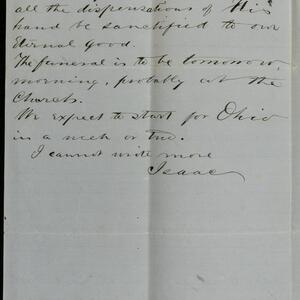 all the dispensations of His
hand be sanctified to our
Eternal good.
The funeral is to be tomorrow,
morning, probably at the
Church.
We expect to start for Ohio
in a week or two.
I cannot write more
Isaac